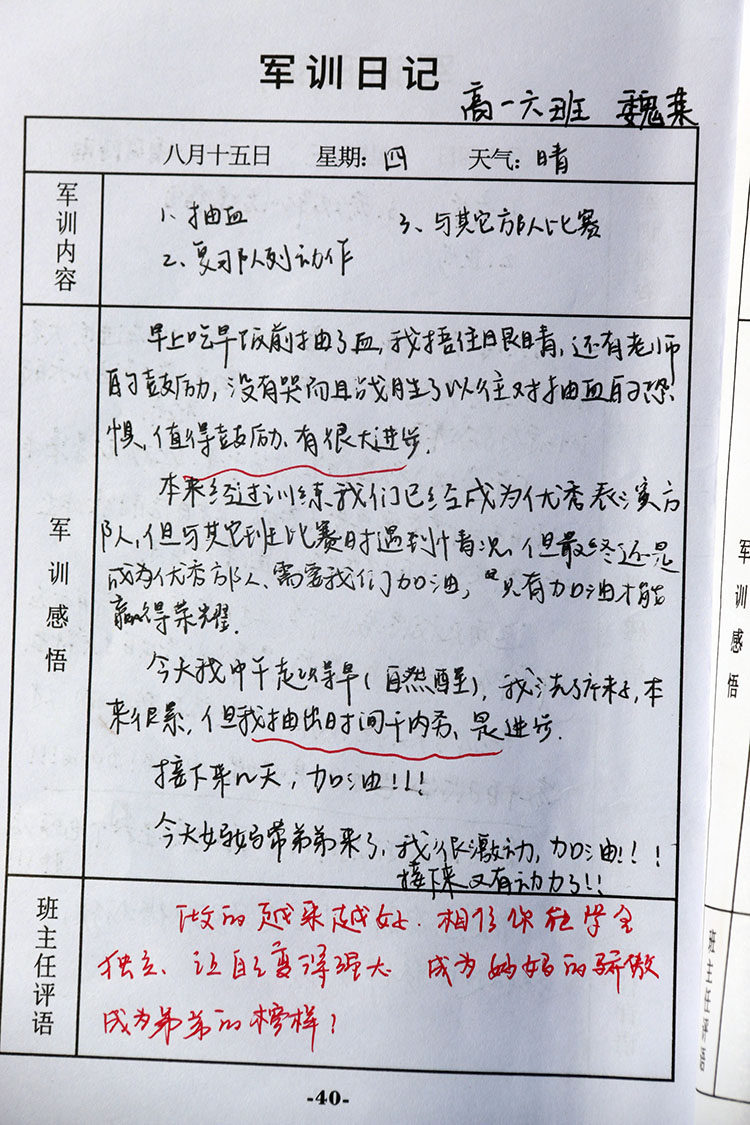 军训日记
高一六班 魏
八月十五日 星期:四 天气:晴
军训内容
1、抽血 3、与其它方队比赛
2、复习队列动作
军训感悟
早上吃早饭前抽了血,我捂住眼睛,还有老师
的鼓励,没有哭而且战胜了以往对抽血的恐
惧、值得鼓励、有很大进步.
本来经过训练我们已经成为优秀表演方
队,但与其它班比赛时遇到情况、但最终还是
成为优秀方队、需要我们加油,只有加油才能
赢得荣耀.
今天我中午起得早(自然醒),我洗了衣,本
来很累,但我抽出时间干内务、是进步.
接下来几天,加油!!!
今天妈妈带弟弟来了,我很激动,加油!!!
接下来又有动力了!!
班主任评语
做的越来越好.相信你能学会
独立、让自己变得强大 成为妈妈的骄傲
成为弟弟的榜样!
-40-
军训感悟
班主任评语